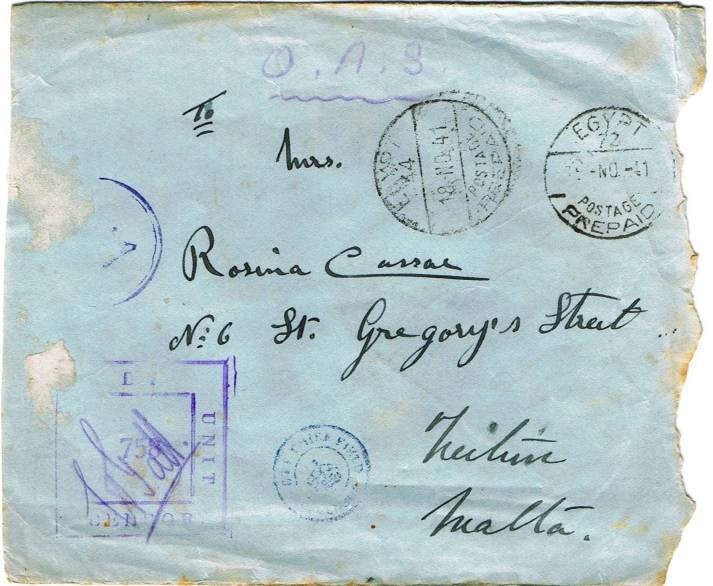 O.A.S.
EGYPT
44
18 NO. 41
POSTAGE
PREPAID
EGYPT
72
-NO.-41
POSTAGE
PREPAID
To
Mrs.
Rosina Cassar
No: 6 St. Gregory's Street
Zeitun
Malta.
BY
UNIT
CENSOR
758